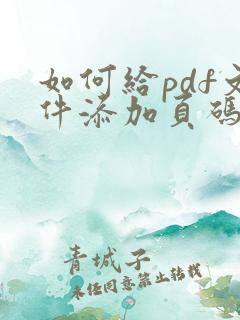 如何给pdf文
件添加页码
青城子
未经同意禁止转载